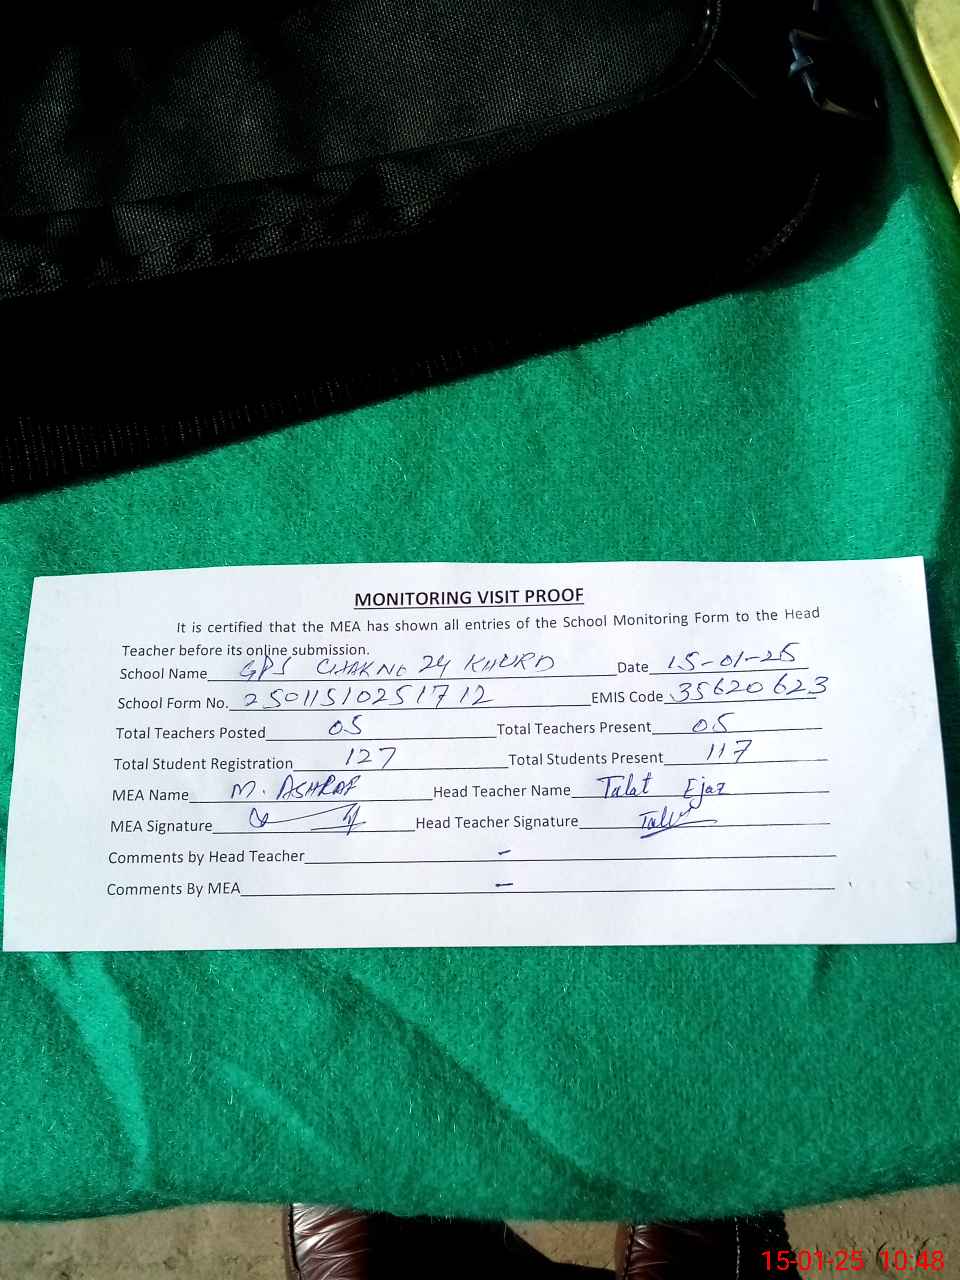 MONITORING VISIT PROOF
It is certified that the MEA has shown all entries of the School Monitoring Form to the Head
Teacher before its online submission.
School Name GPS CHAK NO 24 KHURD Date 15-01-25
School Form No. 25011510251712 EMIS Code 35620623
Total Teachers Posted 05 Total Teachers Present 05
Total Student Registration 127 Total Students Present 117
MEA Name M. ASHRAF Head Teacher Name Talat Ejaz
MEA Signature Head Teacher Signature
Comments by Head Teacher -
Comments By MEA -
15-01-25 10:48